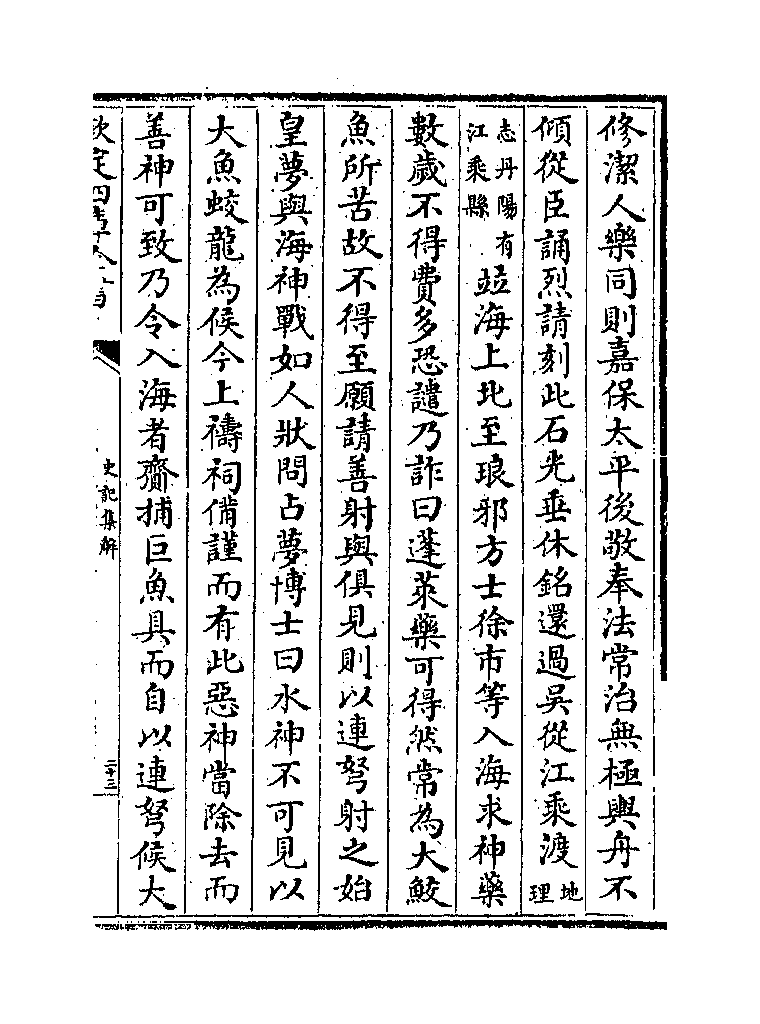 修潔人樂同則嘉保太平後敬奉法常治無極輿舟不
傾從臣誦烈請刻此石光垂休銘還過吳從江乘渡地理
志丹陽有江乘縣並海上北至琅邪方士徐市等入海求神藥
數歲不得費多恐譴乃詐曰蓬萊藥可得然常為大鮫
魚所苦故不得至願請善射與俱見則以連弩射之始
皇夢與海神戰如人狀問占夢博士曰水神不可見以
大魚蛟龍為候今上禱祠備謹而有此惡神當除去而
善神可致乃令入海者齎捕巨魚具而自以連弩候大
欽定四庫全書
史記集解
二十三